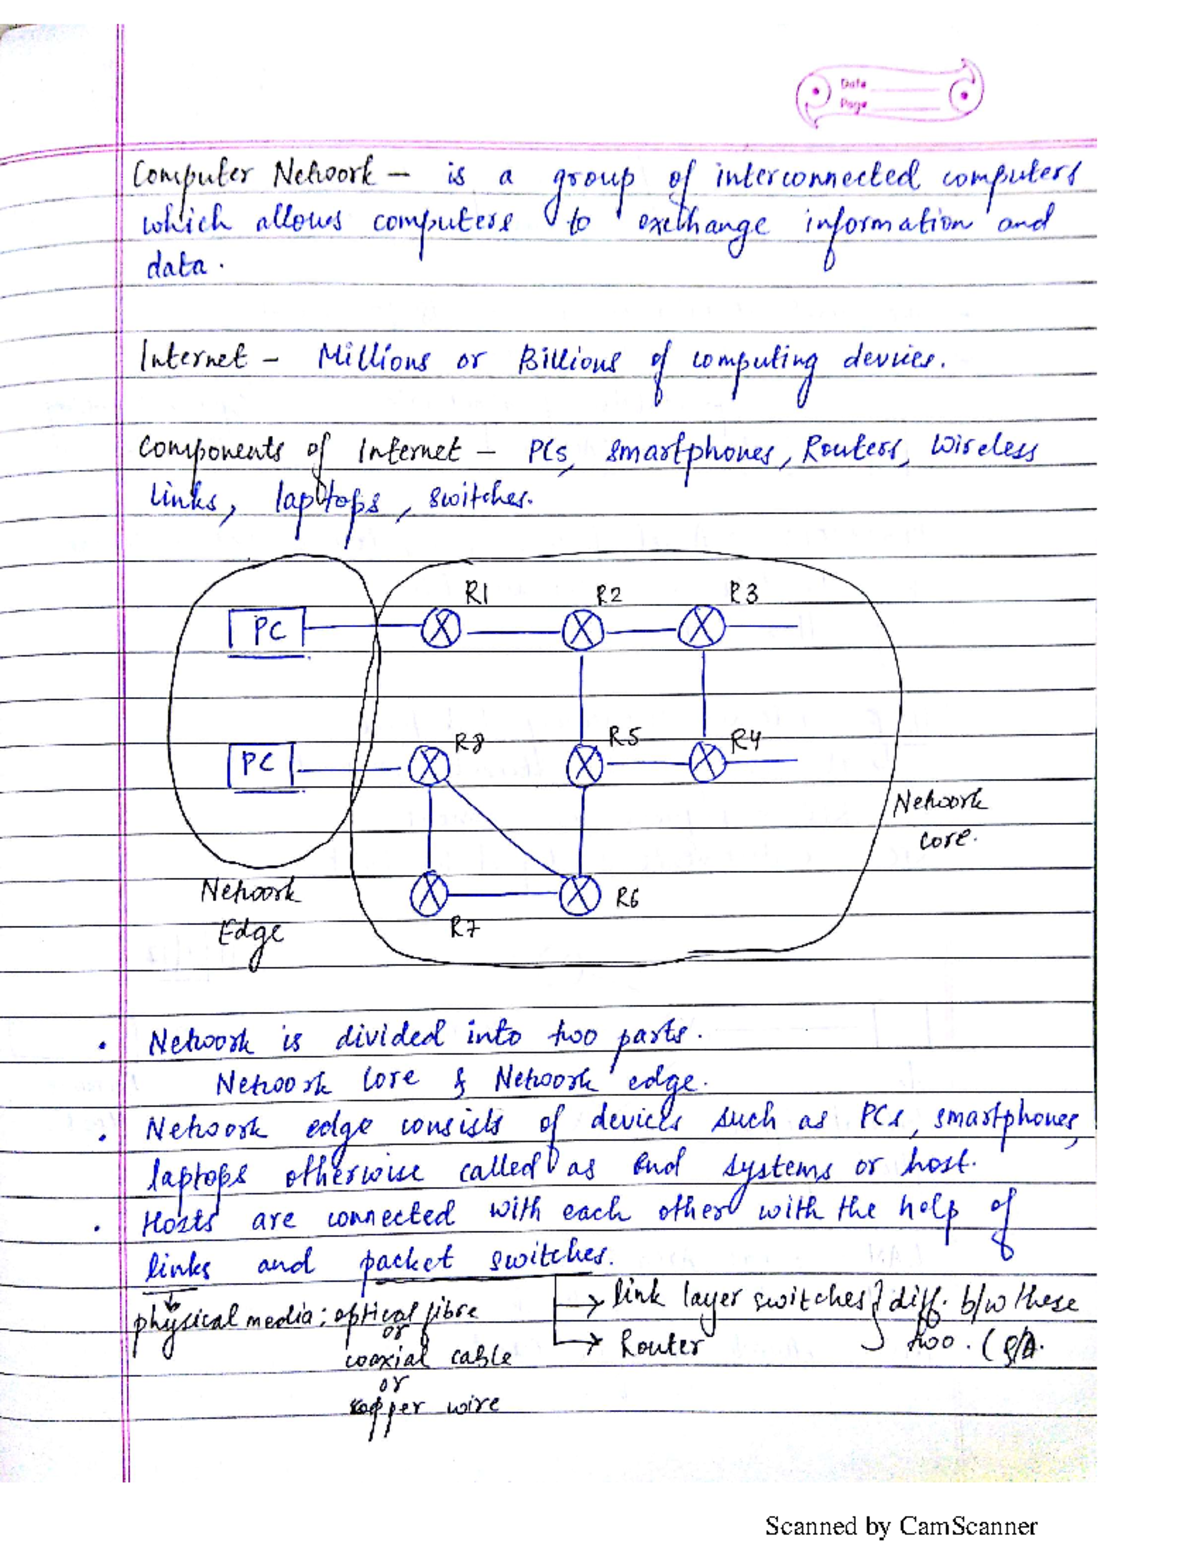 Date
Page
Computer Network — is a group of interconnected computers
which allows computers to exchange information and
data.
Internet — Millions or Billions of computing devices.
Components of Internet — PCs, smartphones, Routers, Wireless
links, laptops, switches.
R1 R2 R3
PC
R8 R5 R4
PC
Network
core.
Network
Edge
R6
R7
. Network is divided into two parts.
Network Core & Network edge.
. Network edge consists of devices such as PCs, smartphones,
laptops otherwise called as End systems or host.
. Hosts are connected with each other with the help of
links and packet switches.
→ link layer switches } diff. b/w these
physical media: optical fibre
or
→ Router
two. (
coaxial cable
or
copper wire
Scanned by CamScanner